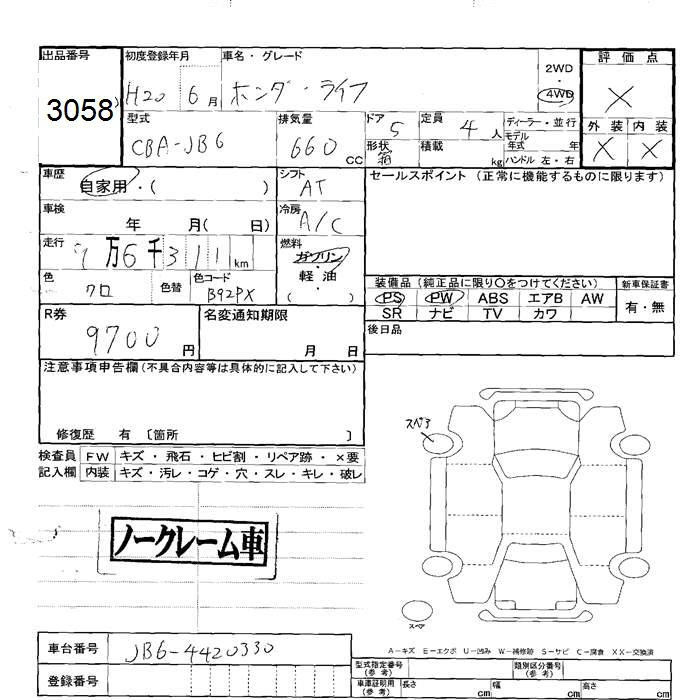 出品番号
3058
初度登録年月
H20 6月
車名・グレード
ホンダ・ライフ
2WD
・
4WD
評価点
X
外装 内装
X X
型式
CBA-JB6
排気量
660 cc
ドア
5
定員
4人
形状
箱
積載
kg
ディーラー・並行
モデル年式 年
ハンドル 左・右
車歴
自家用・( )
シフト
AT
車検
年 月( 日)
冷房
A/C
走行
万6千311km
燃料
ガソリン
・
軽油
( )
色
クロ
色替
色コード
B92PX
セールスポイント (正常に機能するものに限ります)
装備品 (純正品に限り○をつけてください)
PS PW ABS エアB AW
SR ナビ TV カワ
新車保証書
有・無
後日品
R券
9700円
名変通知期限
月 日
注意事項申告欄 (不具合内容等は具体的に記入して下さい)
修復歴 有 〔箇所 〕
検査員記入欄
FW キズ・飛石・ヒビ割・リペア跡・×要
内装 キズ・汚レ・コゲ・穴・スレ・キレ・破レ
ノークレーム車
スペア
スペア
A-キズ E-エクボ U-凹み W-補修跡 S-サビ C-腐食 XX-交換済
車台番号
JB6-4420330
登録番号
型式指定番号(参考)
類別区分番号(参考)
車庫証明用(参考) 長さ cm 幅 cm 高さ cm